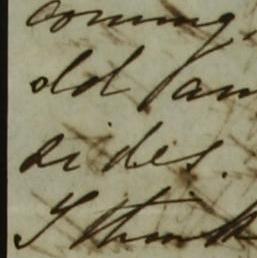 coming,
old
sides.
I think